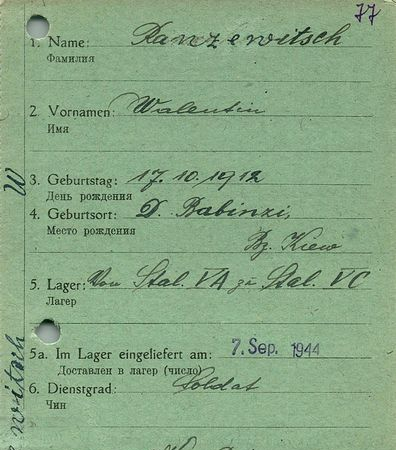 77
1. Name: Ranzewitsch
Фамилия
2. Vornamen: Walentin
Имя
3. Geburtstag: 17.10.1912
День рождения
4. Geburtsort: D. Babinzi,
Место рождения
Bz. Kiew
5. Lager: Von Stal. VA zu Stal. VC
Лагер
5a. Im Lager eingeliefert am: 7. Sep. 1944
Доставлен в лагер (число)
6. Dienstgrad: Soldat
Чин
W
witsch